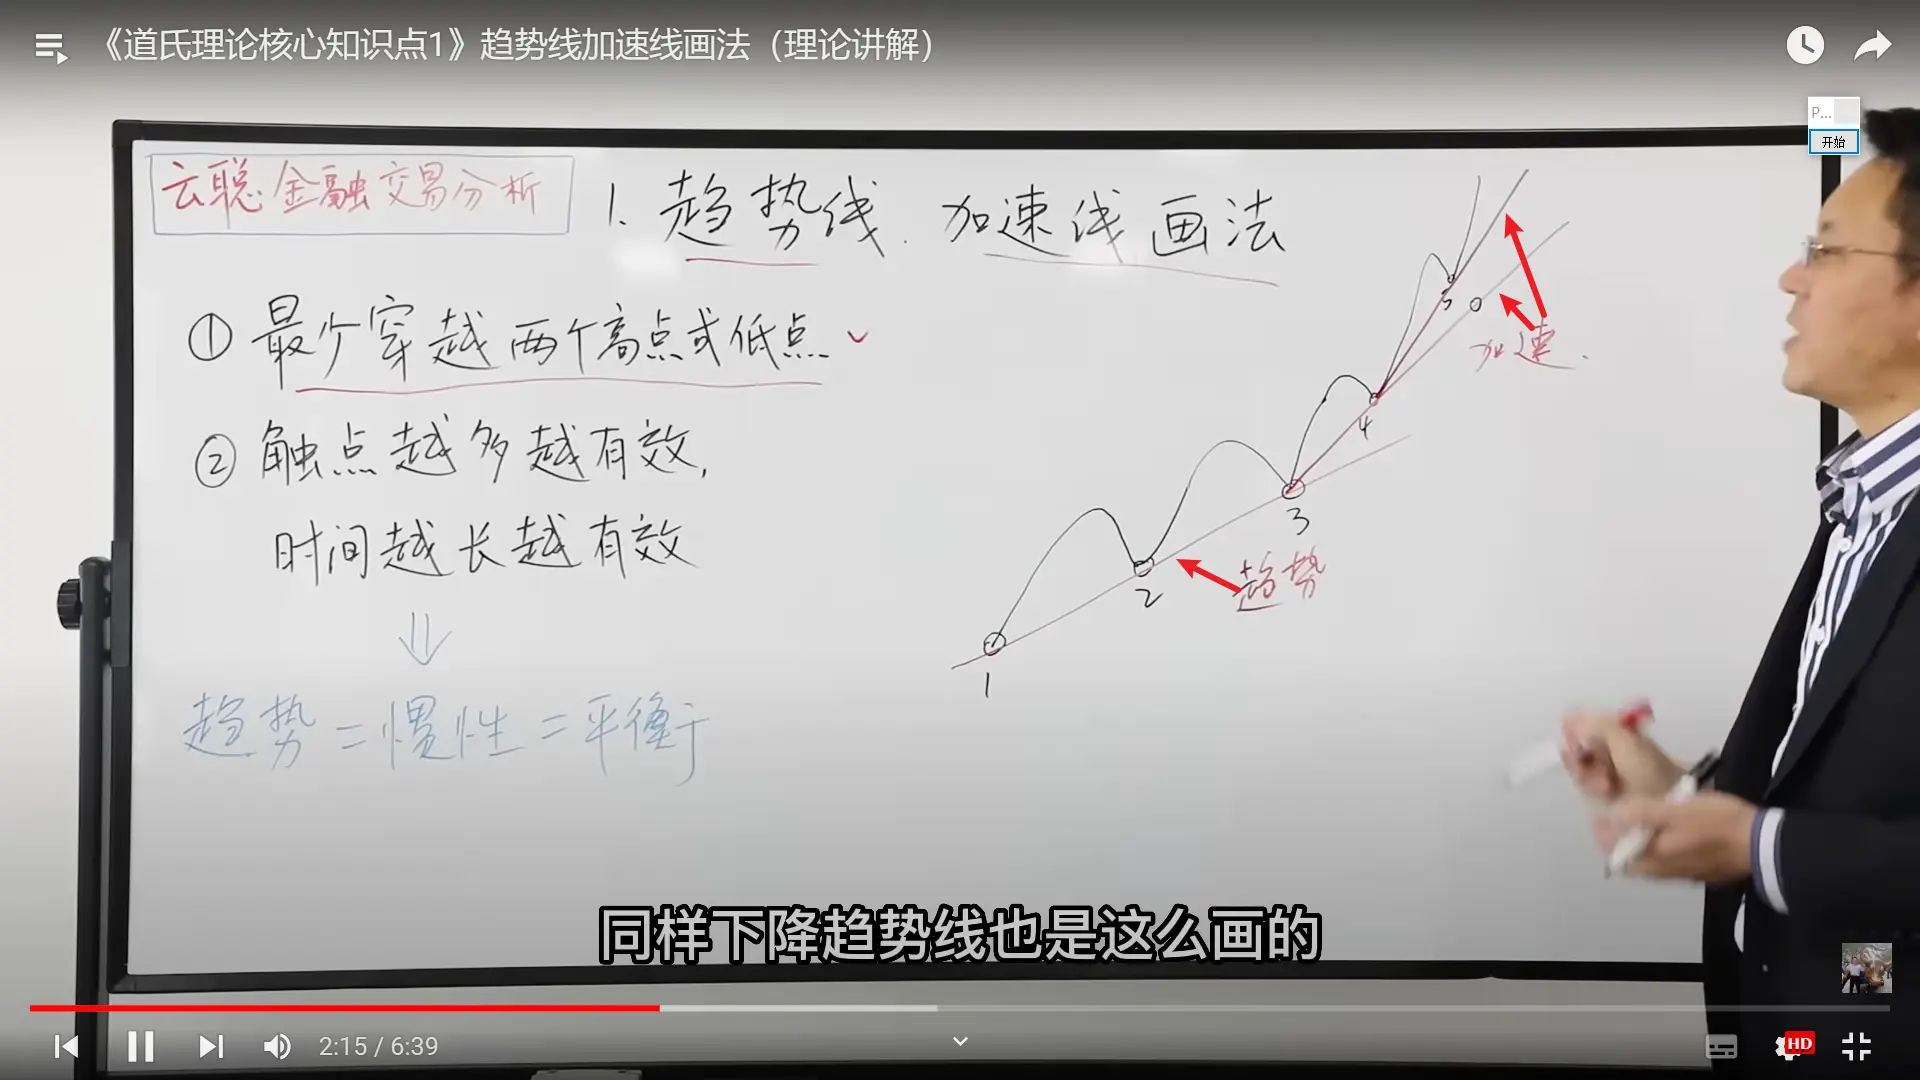 《道氏理论核心知识点1》趋势线加速线画法（理论讲解）
P...
开始
云聪金融交易分析
1. 趋势线. 加速线画法
① 最少穿越两个高点或低点
② 触点越多越有效,
时间越长越有效
趋势=惯性=平衡于
5
0
加速.
4
3
趋势
2
1
同样下降趋势线也是这么画的
2:15 / 6:39
HD